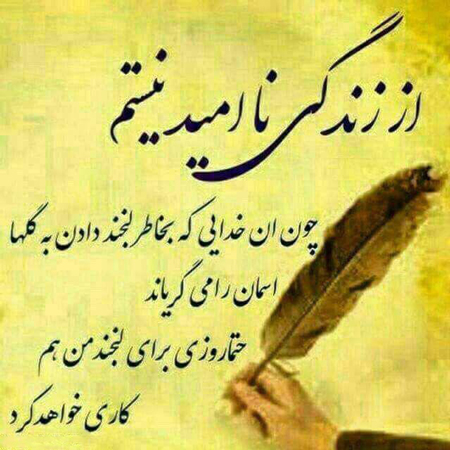 از زندگی نا امید نیستم
چون ان خدایی که بخاطر لبخند دادن به گلها
اسمان را می گریاند
حتما روزی برای لبخند من هم
کاری خواهد کرد